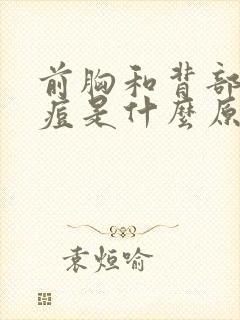 前胸和背部
痘是什麼原
袁烜喻